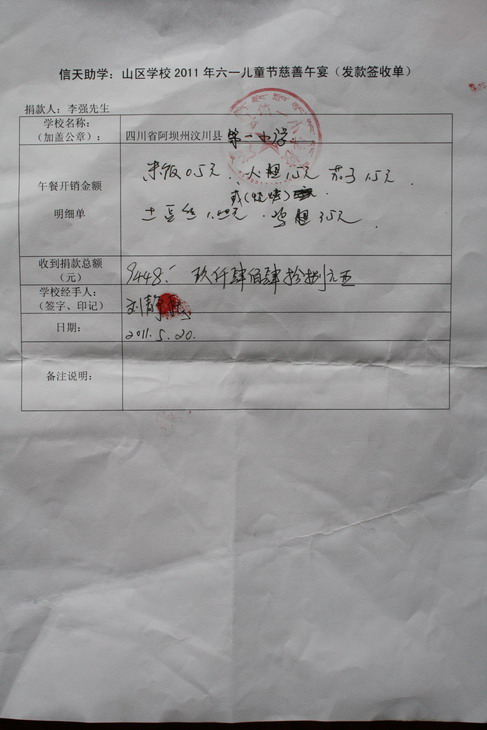 信天助学：山区学校2011年六一儿童节慈善午宴（发款签收单）
捐款人：李强先生
学校名称：
（加盖公章）：
四川省阿坝州汶川县 第一小学
午餐开销金额
明细单
米饭0.5元、火腿1.5元 茄子1.5元
或
土豆丝 元、鸡腿3.5元
收到捐款总额
（元）
9448.- 玖仟肆佰肆拾捌元正
学校经手人：
（签字、印记）
刘静
日期：
2011.5.20.
备注说明：